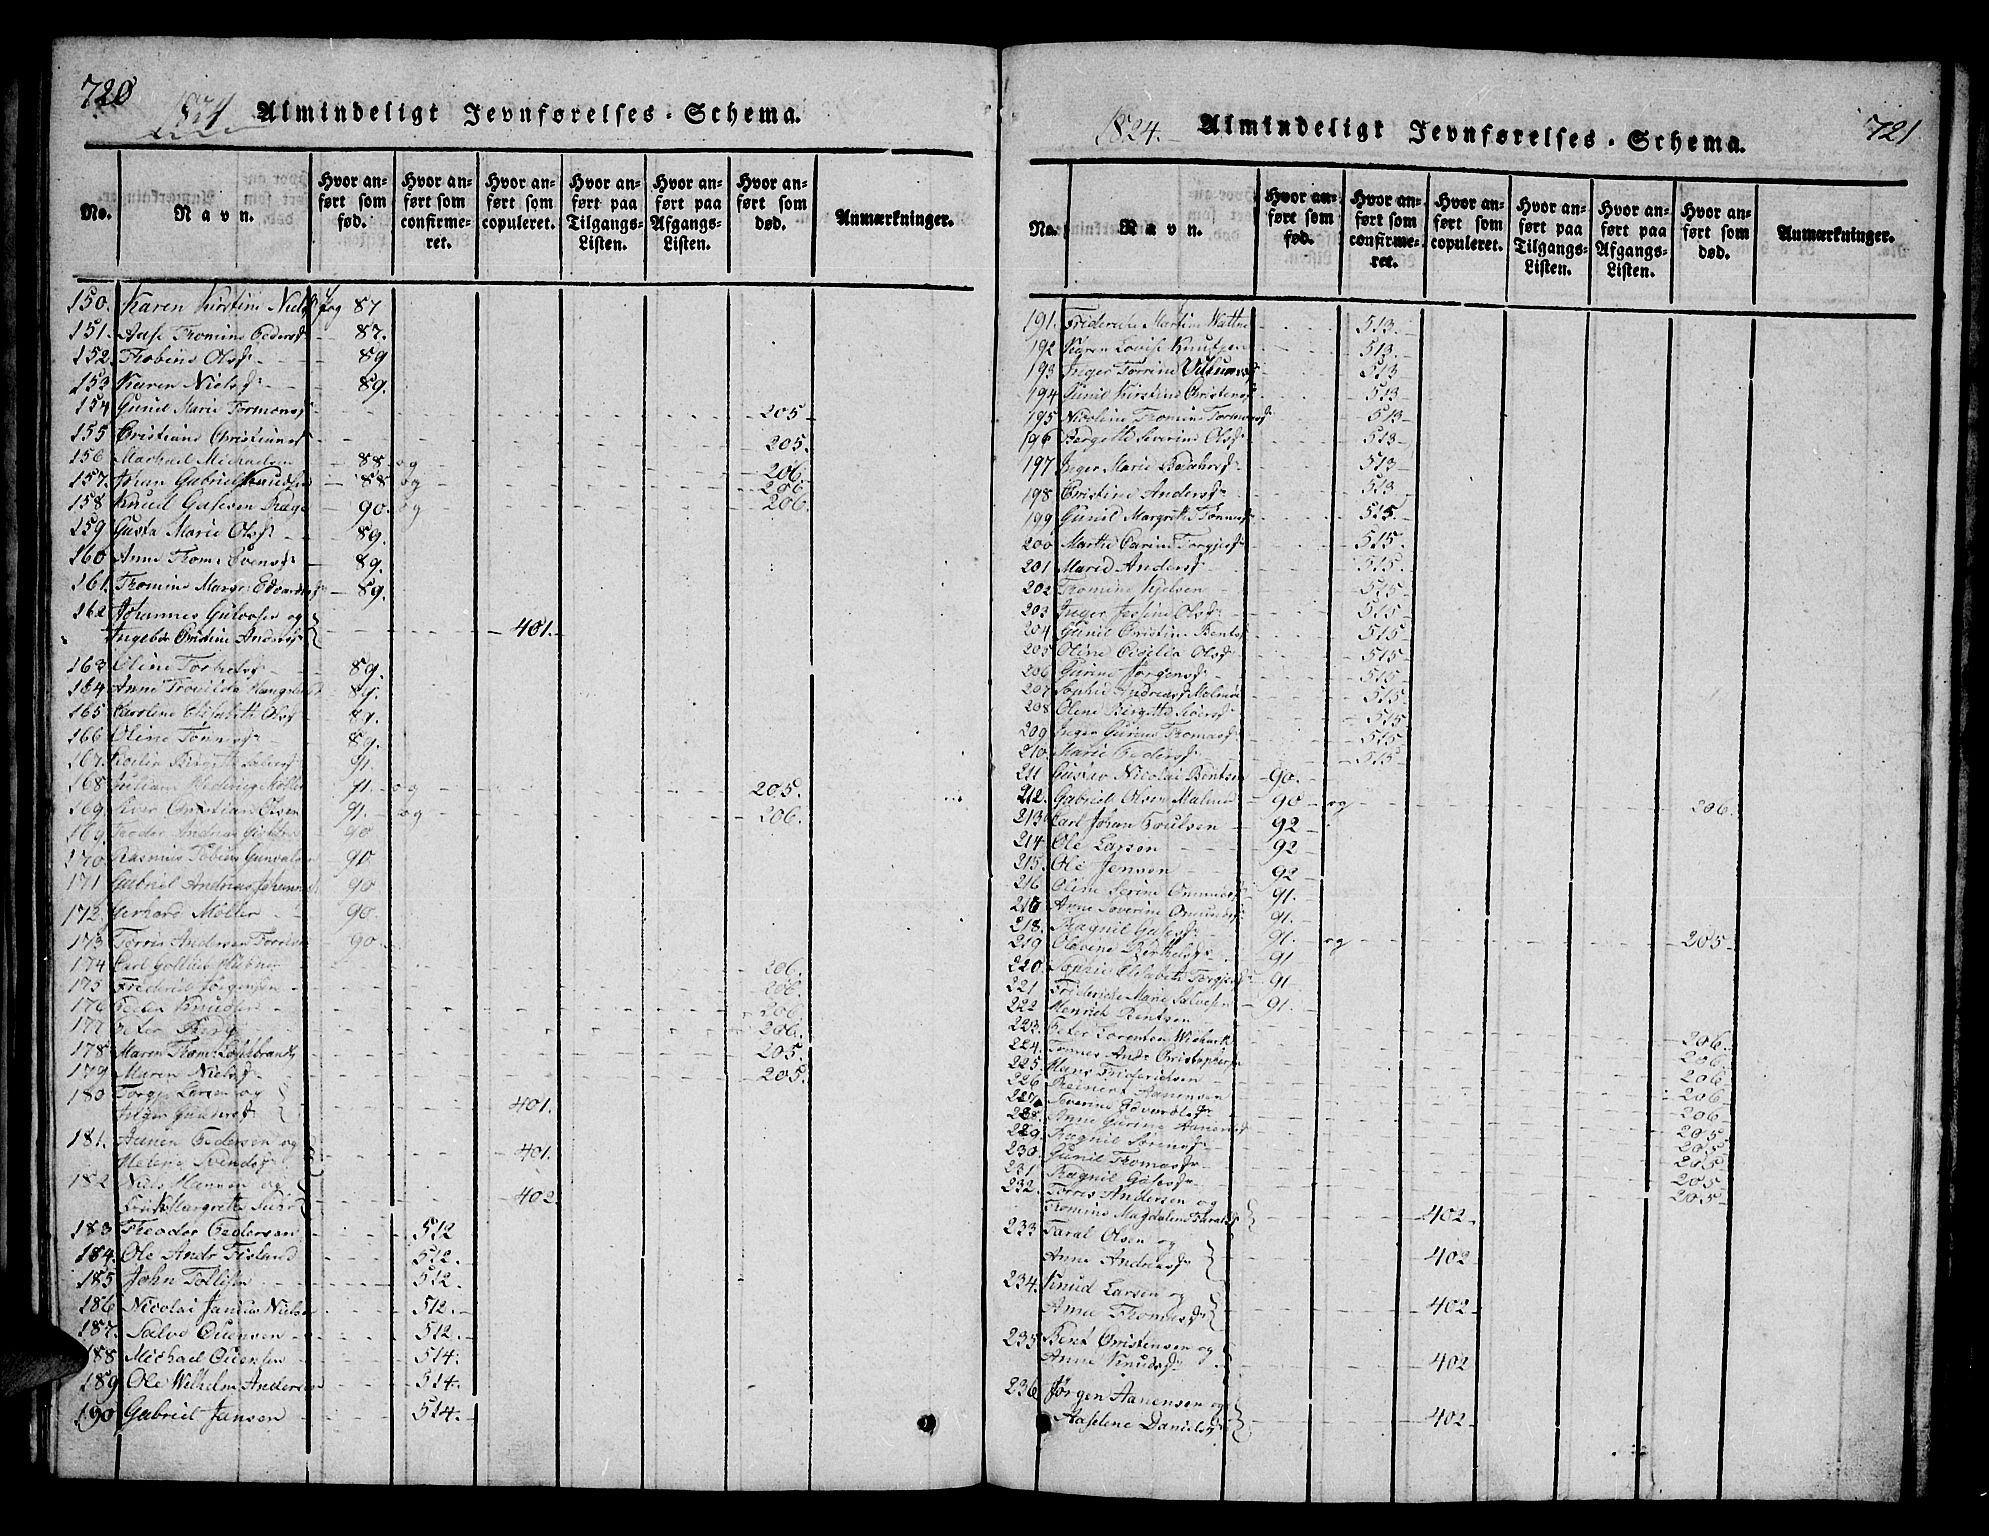 720
1824
Almindeligt Jevnførelses-Schema.
No.
Navn.
Hvor anført som fød.
Hvor anført som confirmeret.
Hvor anført som copuleret.
Hvor anført paa Tilgangs-Listen.
Hvor anført paa Afgangs-Listen.
Hvor anført som død.
Anmærkninger.
150. Karen Kirstine Nielsd pag 87
151. Aase Tromine Pedersd 87.
152. Olsd 89
153 Karen Nielsd 89.
154 Gunil Marie Tormonsd 205
155 Christiane Christiansd 205.
156 Michael Michaelsen 88. og 206.
157. Johan Gabriel Knudsen 88 og 206
158 Knud Gasesen 90. og 206.
159 Gusta Marie Olsd 89.
160 Anne Trom: Evensd 89.
161. Tromine Margr: Edvardsd 89.
162 Johannes og
Ingebr Christine Andersd 401.
163 Oline 89.
164 Anne 89.
165 Caroline Elisabeth Olsd 89.
166 Oline Tønnesd 89.
167. Birgitte 91.
168 Hedevig Møller 91. og 205.
169. Christian Olsen 91. og 206.
169. Andreas 90
170. Rasmus Tobias Gunvalsen 90
171 Gabriel Andreas Johannes 90
172. Gerhard Møller 90.
173 Torris Andersen 90.
174 Carl 206.
175 Friderich Jørgensen 206.
176 Peder Knudsen 206
177 Peter Berg 206.
178 Maren Trom: 205.
179 Maren Nielsd 205.
180 Torge Larsen og
Inger Gundersd 401.
181. Aanen Pedersen og
Helene Svendsd 401.
182 Niels Hansen og
Margrethe 402
183 Theodor Pedersen 512
184. Ole Andr 512.
185 John Tollefsen 512
186 Nicolai Janius Nielsen 512.
187. Salve Evensen 512.
188 Michael Evensen 514.
189 Ole Wilhelm Andersen 514.
190 Gabriel Jansen 514.
1824.
Almindeligt Jevnførelses-Schema.
721
No.
Navn.
Hvor anført som fød.
Hvor anført som confirmeret.
Hvor anført som copuleret.
Hvor anført paa Tilgangs-Listen.
Hvor anført paa Afgangs-Listen.
Hvor anført som død.
Anmærkninger.
191. Friderich Martin Wattne 513.
192 Karen Lovise Knutzen 513.
193 Inger Torrine 513
194 Gunil Kirstine Christensd 513
195 Nicoline Tromine Tormonsd 513
196 Bergitte Severine Olsd 513
197 Inger Marie 513
198 Christine Andersd 513
199 Gunil Margrete Tønnesd 515.
200 Marthe Carine Torgjersd 515.
201 Maren Andersd 515.
202 Tromine Kjelsen 515
203 Inger Jessine Olsd 515
204 Gunil Christine Bentsd 515
205 Oline Cecilia Olsd 515
206 Gurine Jørgensd 515
207 Sophie Andreasd Malmøe 515
208 Olene Birgitte 515
209 Inger Gurine Thomasd 515
210. Marie Pedersd 515
211 Gustav Nicolai Bentsen 90.
212. Gabriel Olsen Malmøe 90 og 206.
213 Carl Johan Poulsen 92
214 Ole Larsen 92
215. Ole Jensen 92
216 Oline Serine Omundsd 91.
216 Anne Severine Omundsd 91.
218. Ragnil Gasesd 91. og 205
219 Olavine Berthelsd 91
220. Sophie Elisabeth Torgjersd 91
221 Friderich Marie Salvesen 91.
222 Henrich Bentsen
223. Peter Lorentsen 206
224. Tønnes Andr Christophersen 206
225. Hans Friderichsen 206
226 Reinert Aanensen 206
227 Severine Edvardsd 206
228. Anne Gurine Aanensd 205
229. Ragnil Sørensd 205
230. Gunil Thomasd 205
231 Ragnil Gasesd 205
232. Torris Andersen og 205
Tromine Magdalene 402
233 Taral Olsen og
Anne Andreasd 402
234. Knud Larsen og
Anne Thomasd 402
235 Bent Christensen og
Anne Knudsd 402
236 Jørgen Aanensen og
Aaselene Danielsd 402